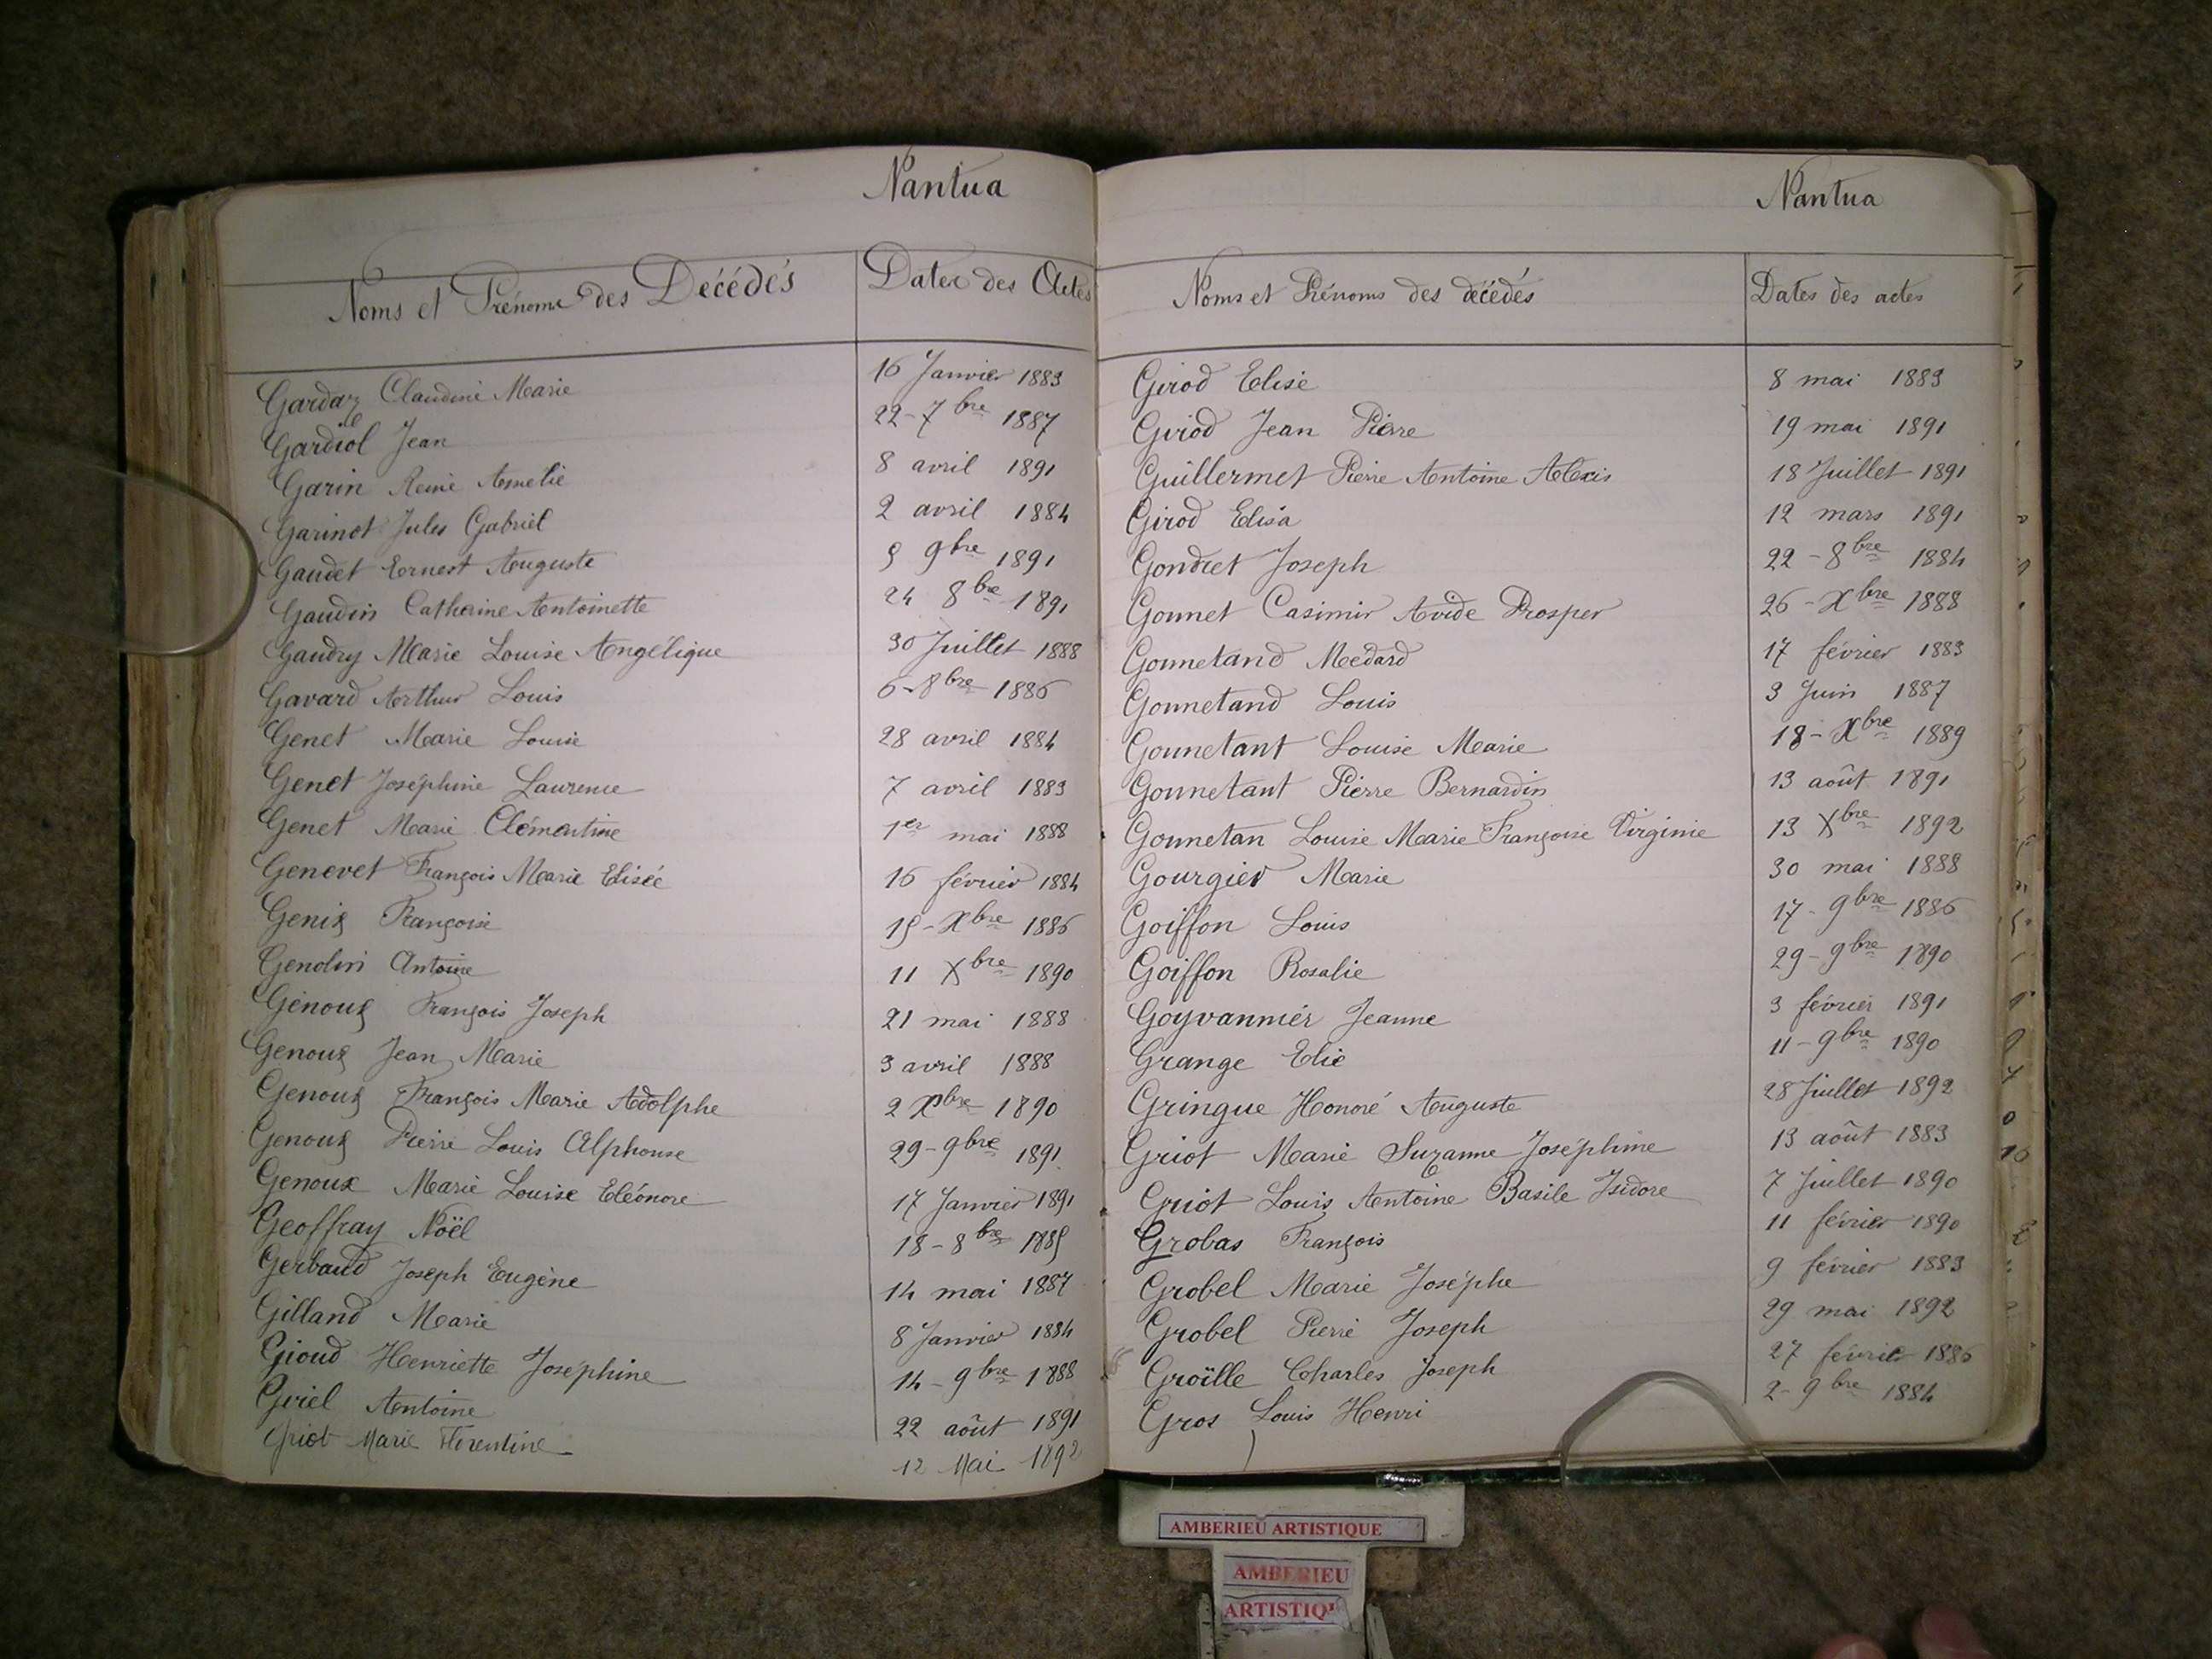 Nantua
Noms et Prénoms des Décédés Dates des Actes
Gardaz Claudine Marie 16 Janvier 1883
Gardiol Jean 22-7bre 1887
Garin Reine Amélie 8 avril 1891
Garinot Jules Gabriel 2 avril 1884
Gaudet Ernest Auguste 5 9bre 1891
Gaudin Catherine Antoinette 24 8bre 1891
Gaudry Marie Louise Angélique 30 Juillet 1888
Gavard Arthur Louis 6-8bre 1886
Genet Marie Louise 28 avril 1884
Genet Joséphine Laurence 7 avril 1883
Genet Marie Clémentine 1er mai 1888
Genevet François Marie Elisée 16 février 1884
Genix Françoise 15-Xbre 1886
Genolin Antoine 11 Xbre 1890
Génoux François Joseph 21 mai 1888
Genoux Jean Marie 3 avril 1888
Genoux François Marie Adolphe 2 Xbre 1890
Genoux Pierre Louis Alphonse 29-9bre 1891
Genoux Marie Louise Eléonore 17 Janvier 1891
Geoffray Noël 18-8bre 1885
Gerbaud Joseph Eugène 14 mai 1887
Gilland Marie 8 Janvier 1884
Gioud Henriette Joséphine 14-9bre 1888
Griel Antoine 22 août 1891
Griot Marie Florentine 12 Mai 1892
Nantua
Noms et Prénoms des décédés Dates des actes
Girod Elise 8 mai 1883
Girod Jean Pierre 19 mai 1891
Guillermet Pierre Antoine Alexis 18 Juillet 1891
Girod Elisa 12 mars 1891
Gondret Joseph 22-8bre 1884
Gonnet Casimir Avide Prosper 26-Xbre 1888
Gonnetand Médard 17 février 1883
Gonnetand Louis 3 Juin 1887
Gonnetant Louise Marie 18-Xbre 1889
Gonnetant Pierre Bernardin 13 août 1891
Gonnetan Louise Marie Françoise Virginie 13 Xbre 1892
Gourgier Marie 30 mai 1888
Goiffon Louis 17-9bre 1886
Goiffon Rosalie 29-9bre 1890
Goyvannier Jeanne 3 février 1891
Grange Elie 11-9bre 1890
Gringue Honoré Auguste 28 Juillet 1892
Griot Marie Suzanne Joséphine 13 août 1883
Griot Louis Antoine Basile Isidore 7 Juillet 1890
Grobas François 11 février 1890
Grobel Marie Josèphe 9 février 1883
Grobel Pierre Joseph 29 mai 1892
Groïlle Charles Joseph 27 février 1886
Gros Louis Henri 2-9bre 1884
AMBERIEU ARTISTIQUE
AMBERIEU